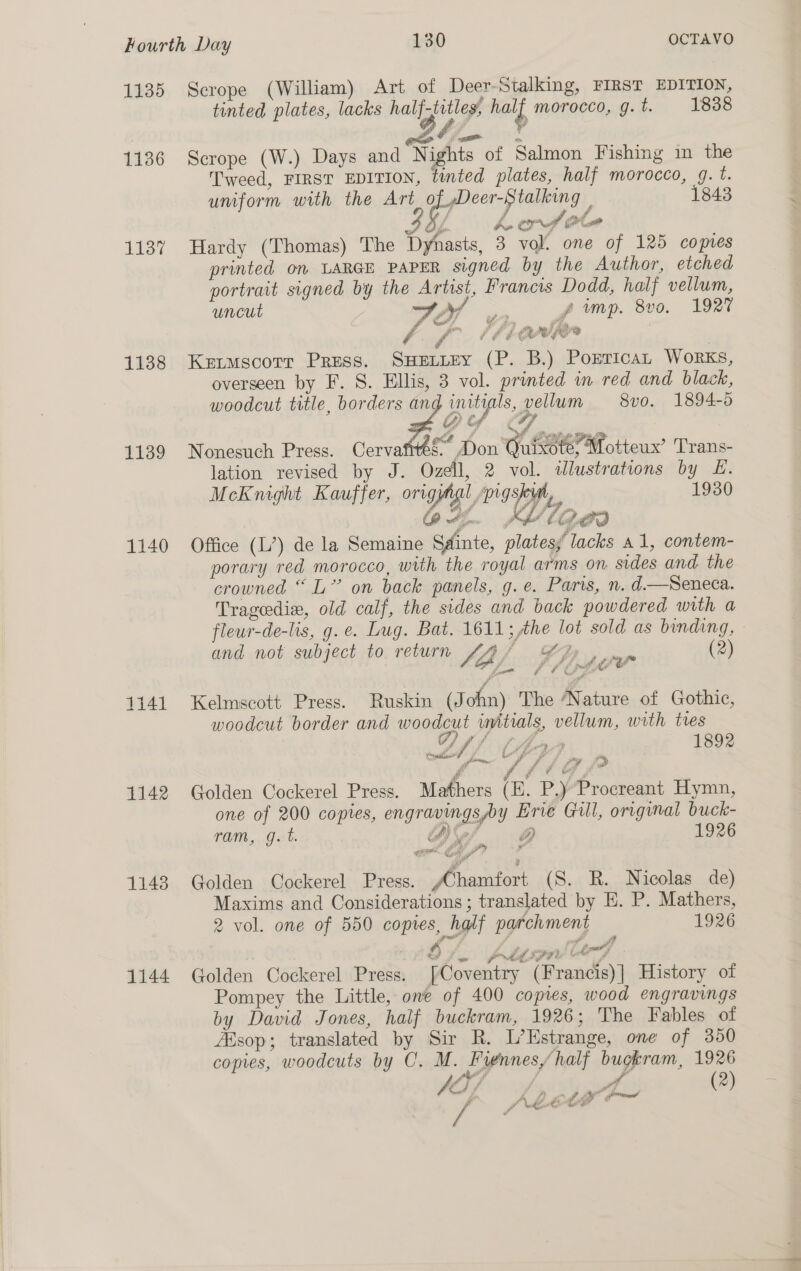 Fourth Day 130 OCTAVO
1135 Scrope (William) Art of Deer-Stalking, FIRST EDITION,
tinted plates, lacks half-titles, half morocco, g. t. 1838
1136 Scrope (W.) Days and Nights of Salmon Fishing in the
Tweed, FIRST EDITION, tinted plates, half morocco, g. t.
uniform with the Art of Deer-Stalking 1843
1137 Hardy (Thomas) The Dynasts, 3 vol. one of 125 copies
printed on LARGE PAPER signed by the Author, etched
portrait signed by the Artist, Francis Dodd, half vellum,
uncut imp. 8vo. 1927
1138 KELMSCOTT PRESS. SHELLEY (P. B.) POETICAL WORKS,
overseen by F. S. Ellis, 3 vol. printed in red and black,
woodcut title, borders and initials, vellum 8vo. 1894-5
1139 Nonesuch Press. Cervantes. Don Quixote, Motteux' Trans-
lation revised by J. Ozell, 2 vol. illustrations by E.
McKnight Kauffer, original pigskin, 1930
1140 Office (L') de la Semaine Sainte, plates, lacks A 1, contem-
porary red morocco, with the royal arms on sides and the
crowned “ L ” on back panels, g. e. Paris, n. d.—Seneca.
Tragœdiæ, old calf, the sides and back powdered with a
fleur-de-lis, g. e. Lug. Bat. 1611; the lot sold as binding,
and not subject to return (2)
1141 Kelmscott Press. Ruskin (John) The Nature of Gothic,
woodcut border and woodcut initials, vellum, with ties
1892
1142 Golden Cockerel Press. Mathers (E. P.) Procreant Hymn,
one of 200 copies, engravings by Eric Gill, original buck-
ram, g. t. 1926
1143 Golden Cockerel Press. Chamfort (S. R. Nicolas de)
Maxims and Considerations ; translated by E. P. Mathers,
2 vol. one of 550 copies, half parchment 1926
1144 Golden Cockerel Press. [Coventry (Francis)] History of
Pompey the Little, one of 400 copies, wood engravings
by David Jones, half buckram, 1926; The Fables of
Æsop; translated by Sir R. L'Estrange, one of 350
copies, woodcuts by C. M. Fiennes, half buckram, 1926
(2)